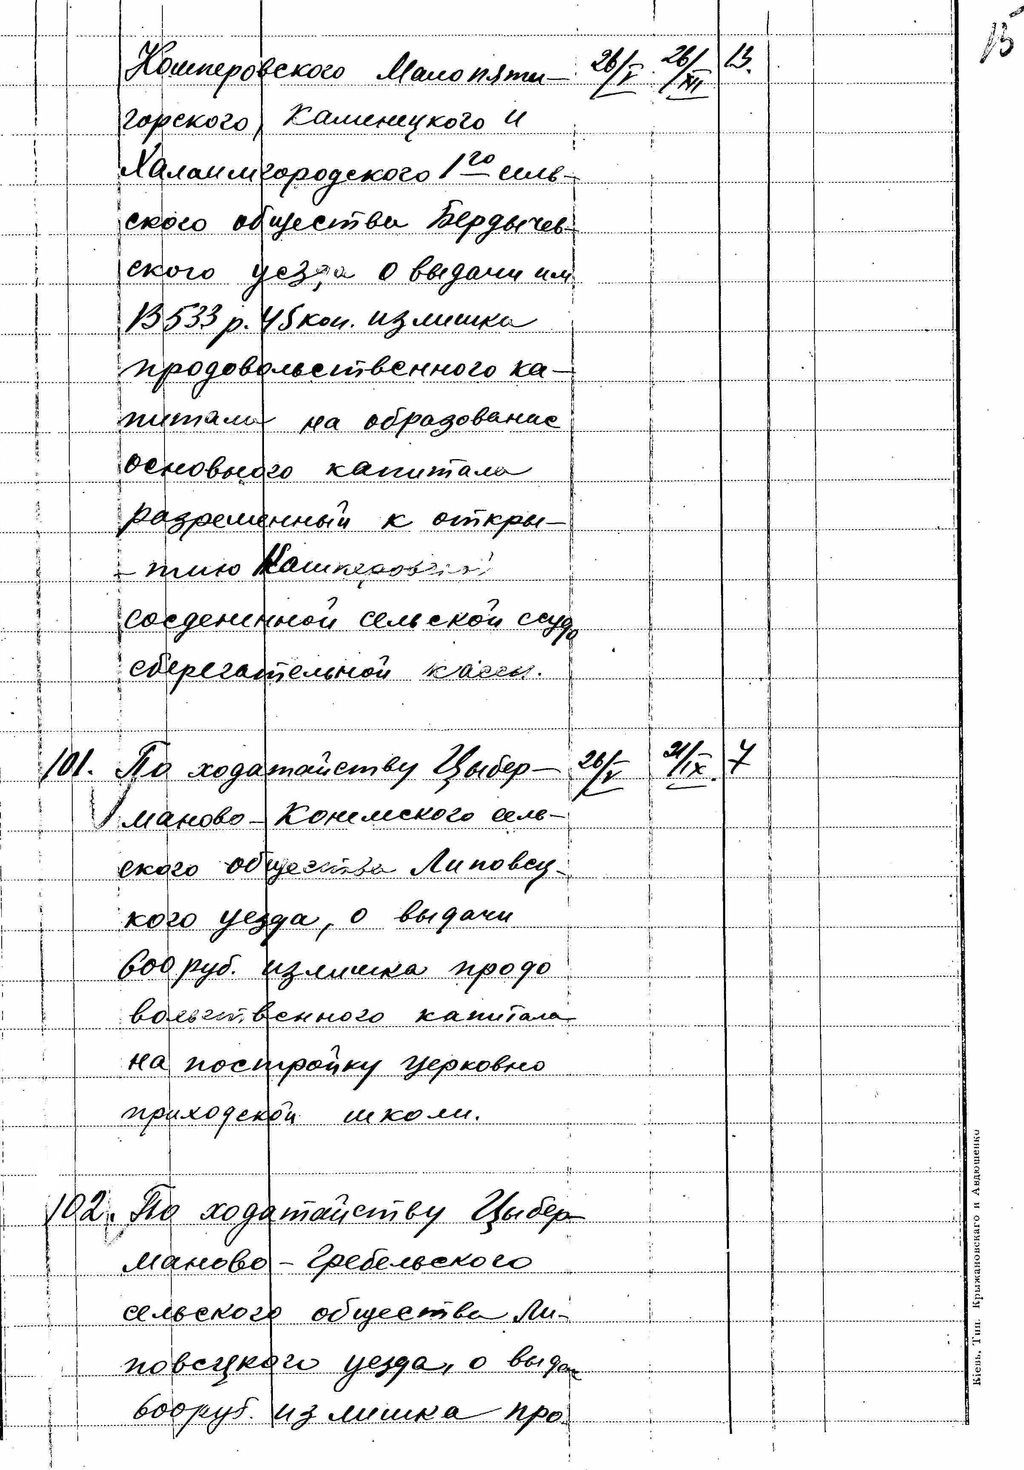 15
Кашперовского Малопяти- 26/V 26/XI 13.
горского, Каменецкого и
Халаимгородского 1го сель-
ского общества Бердычев-
ского уезда о выдачи им
13533 р. 45 коп. излишка
продовольственного ка-
питала на образование
основного капитала
разременный к откры-
- тию Кашперовской
соедененной сельской ссудо
сберегательной кассы.
101. По ходатайству Цыбер- 26/V 21/IX. 7
маново-Кожемского сель-
ского общества Липовец-
кого уезда, о выдачи
600 руб. излишка продо
вольственного капитала
на постройку церковно
приходской школи.
102. По ходатайству Цыбер-
маново-Гребельского
сельского общества Ли-
повецкого уезда, о выдач
600 руб. излишка про-
Кіевъ, Тип. Крыжановскаго и Авдюшенко